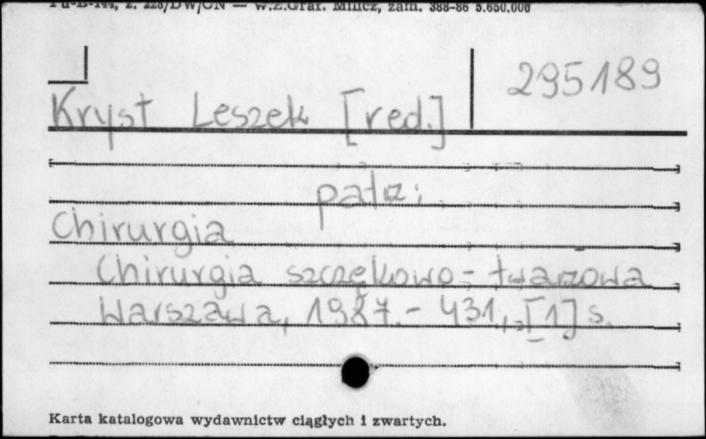 Pu-B-144, z. 228/DW/ON — W.Z.Graf. Milicz, zam. 388-86 5.650.000
295189
Kryst Leszek [red.]
patrz:
Chirurgia
Chirurgia szczękowo-twarzowa
Warszawa, 1987.- 431, [1] s.
Karta katalogowa wydawnictw ciągłych i zwartych.